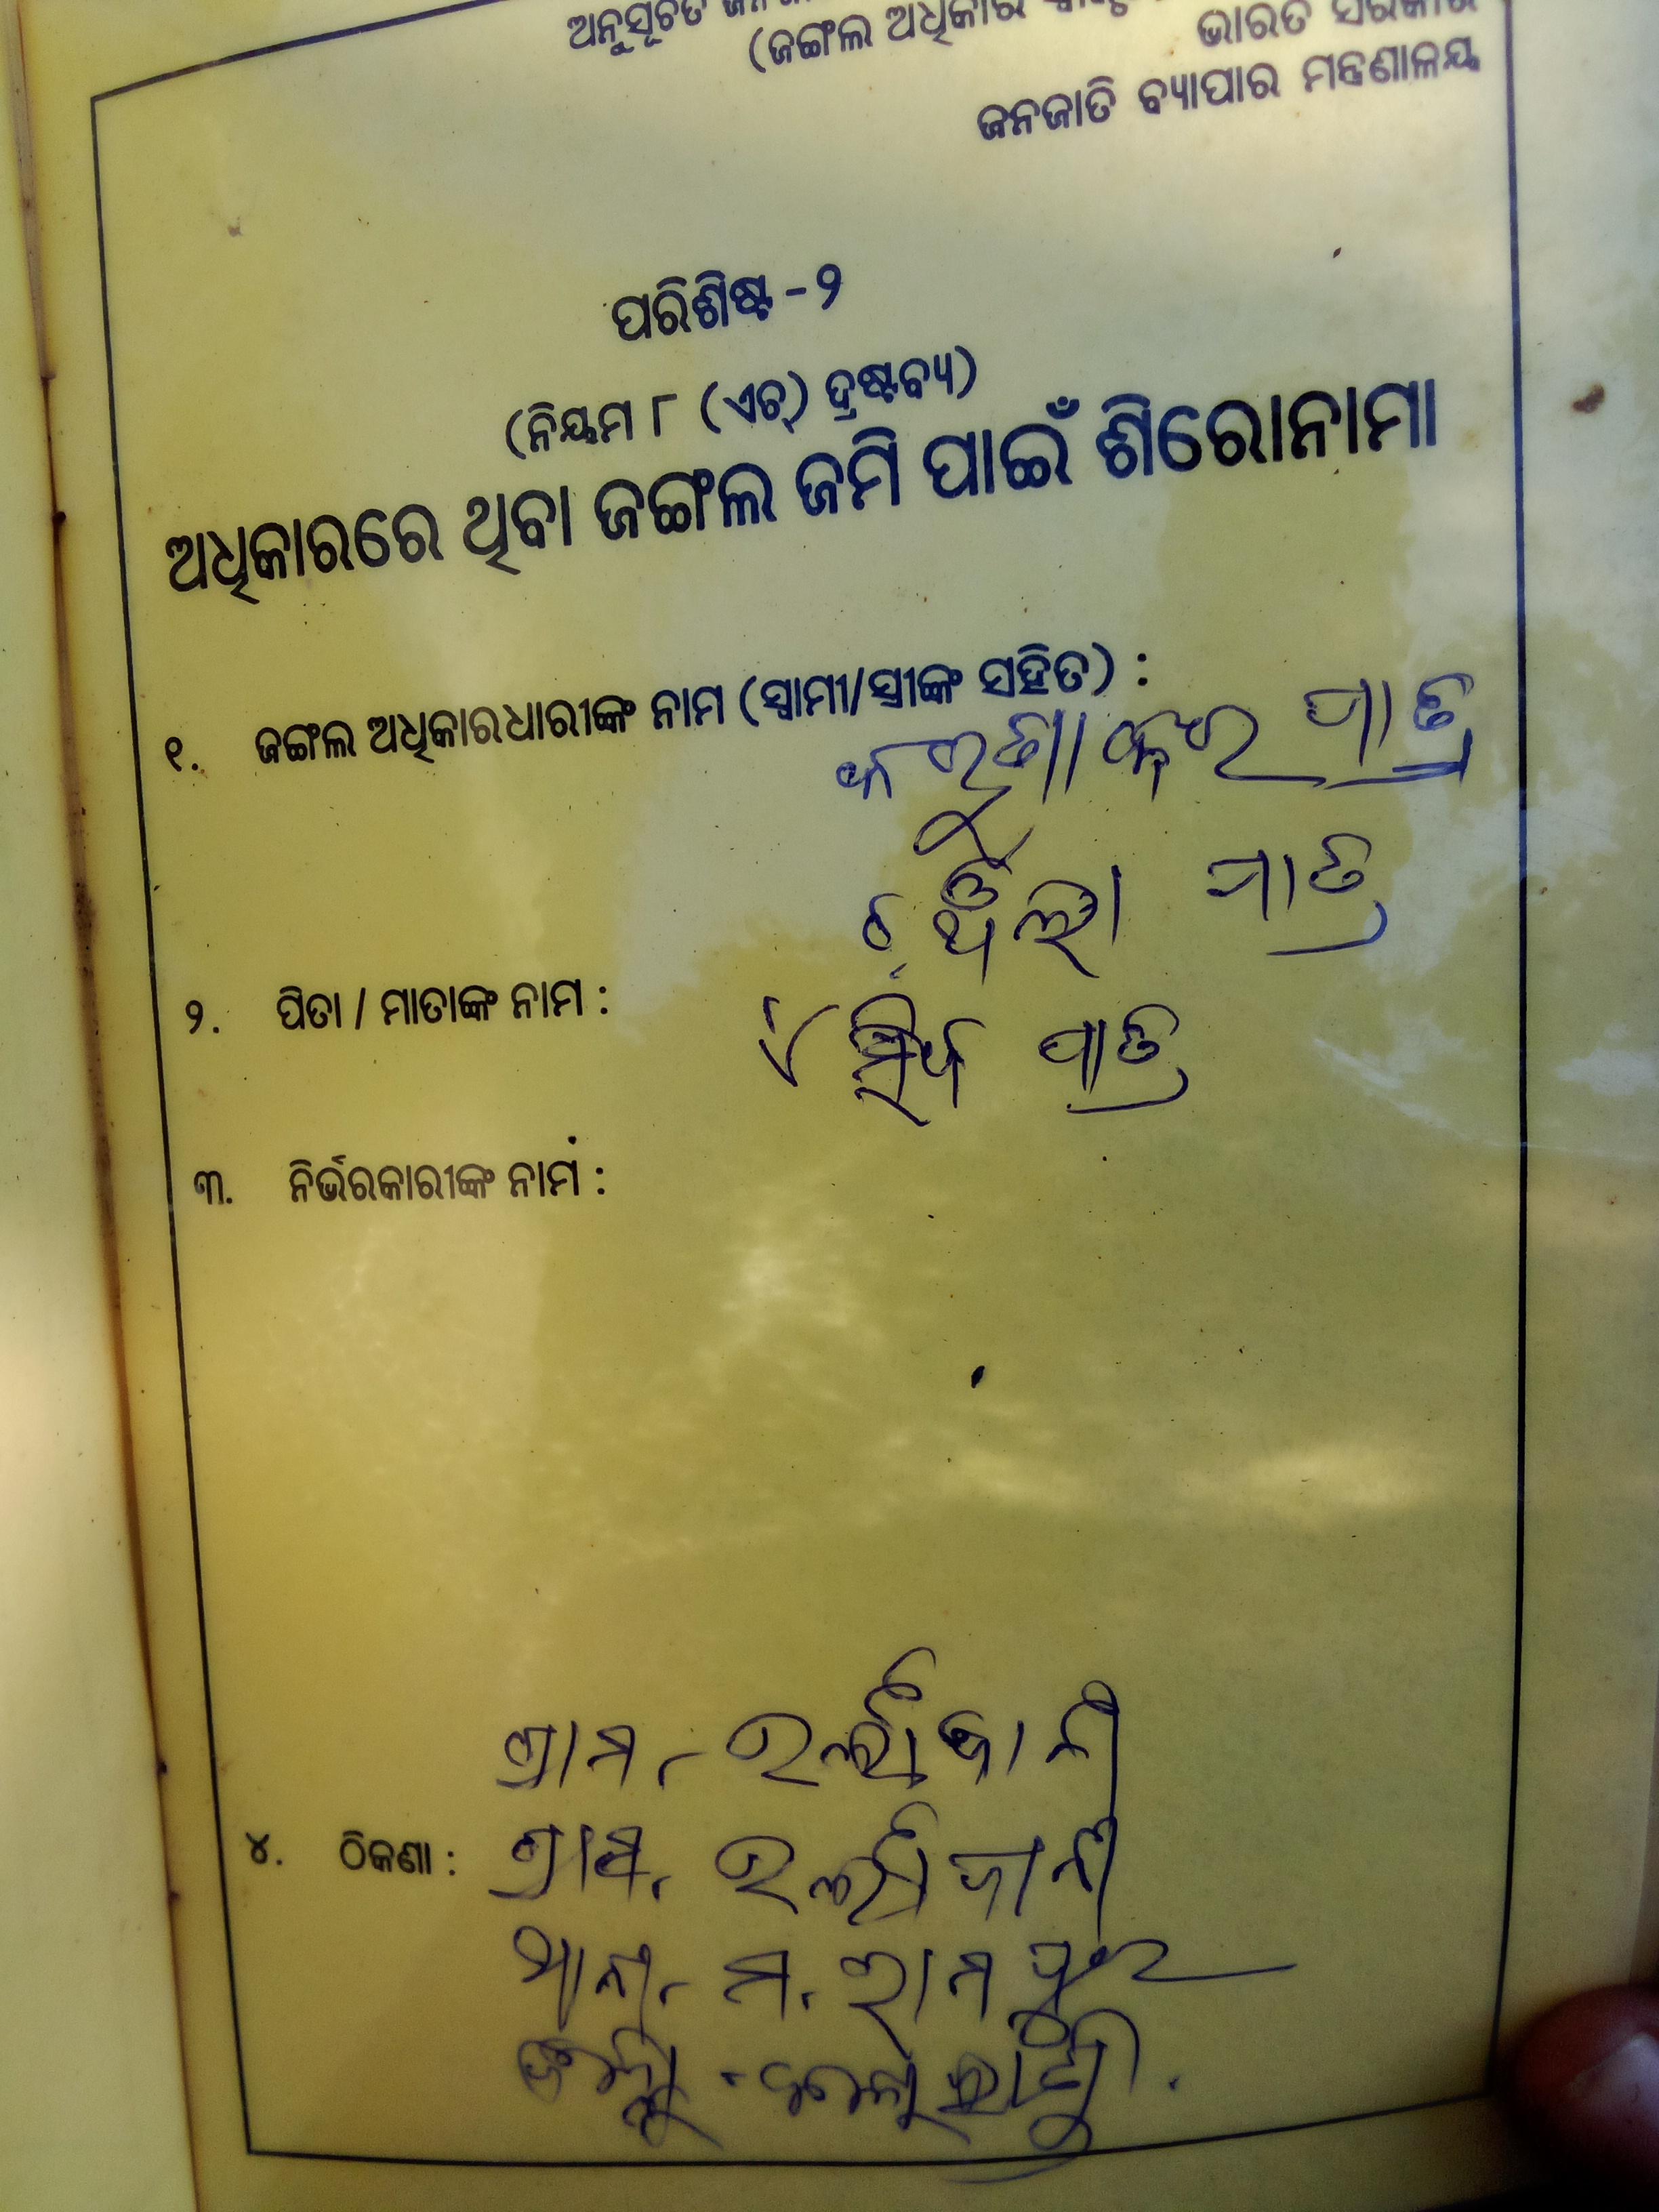 ଅନୁସୂଚିତ
(ଜଙ୍ଗଲ ଅଧିକାର
ଭାରତ ସରକାର
ଜନଜାତି ବ୍ୟାପାର ମନ୍ତ୍ରଣାଳୟ
ପରିଶିଷ୍ଟ -୨
(ନିୟମ ୮ (ଏଚ୍) ଦ୍ରଷ୍ଟବ୍ୟ)
ଅଧିକାରରେ ଥିବା ଜଙ୍ଗଲ ଜମି ପାଇଁ ଶିରୋନାମା
୧. ଜଙ୍ଗଲ ଅଧିକାରଧାରୀଙ୍କ ନାମ (ସ୍ୱାମୀ/ସ୍ତ୍ରୀଙ୍କ ସହିତ) :
କରୁଣାକର ପାତ୍ର
ପାତ୍ର
୨. ପିତା / ମାତାଙ୍କ ନାମ :
ପାତ୍ର
୩. ନିର୍ଭରକାରୀଙ୍କ ନାମ :
ଗ୍ରାମ -
୪. ଠିକଣା : ଗ୍ରାମ -
ଥାନା - ମ. ରାମପୁର